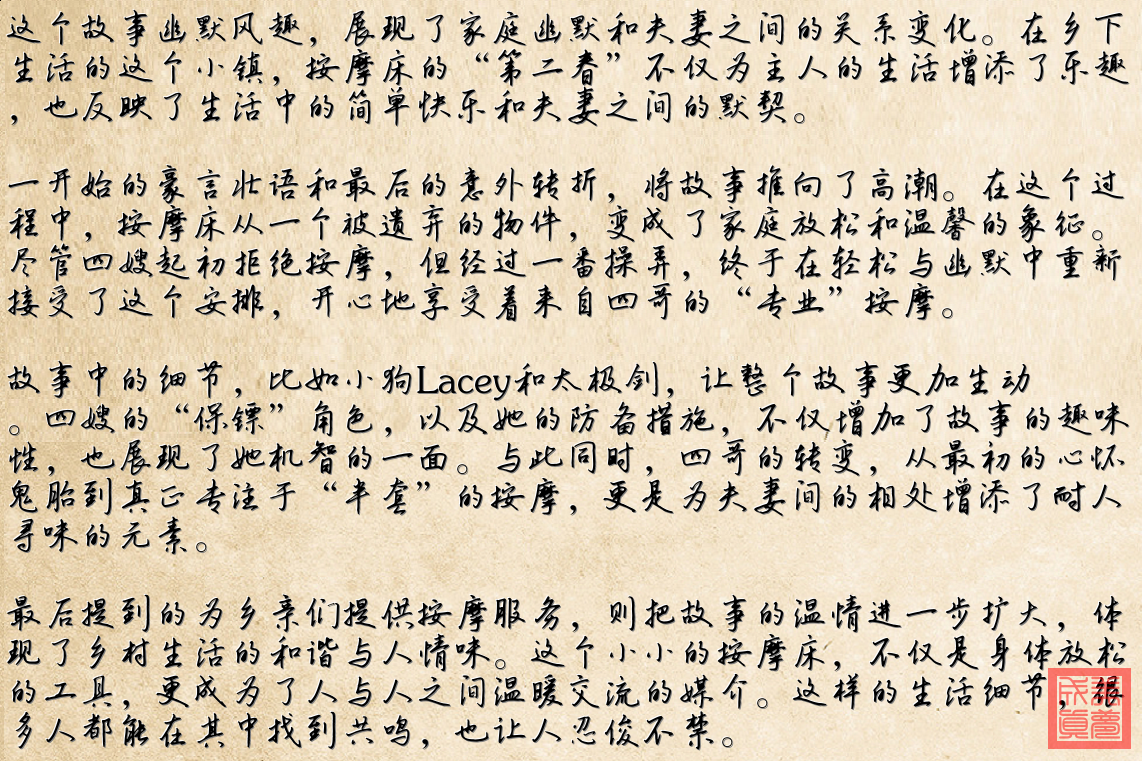 这个故事幽默风趣，展现了家庭幽默和夫妻之间的关系变化。在乡下
生活的这个小镇，按摩床的“第二春”不仅为主人的生活增添了乐趣
，也反映了生活中的简单快乐和夫妻之间的默契。
一开始的豪言壮语和最后的意外转折，将故事推向了高潮。在这个过
程中，按摩床从一个被遗弃的物件，变成了家庭放松和温馨的象征。
尽管四嫂起初拒绝按摩，但经过一番操弄，终于在轻松与幽默中重新
接受了这个安排，开心地享受着来自四哥的“专业”按摩。
故事中的细节，比如小狗Lacey和太极剑，让整个故事更加生动
。四嫂的“保镖”角色，以及她的防备措施，不仅增加了故事的趣味
性，也展现了她机智的一面。与此同时，四哥的转变，从最初的心怀
鬼胎到真正专注于“半套”的按摩，更是为夫妻间的相处增添了耐人
寻味的元素。
最后提到的为乡亲们提供按摩服务，则把故事的温情进一步扩大，体
现了乡村生活的和谐与人情味。这个小小的按摩床，不仅是身体放松
的工具，更成为了人与人之间温暖交流的媒介。这样的生活细节，很
多人都能在其中找到共鸣，也让人忍俊不禁。